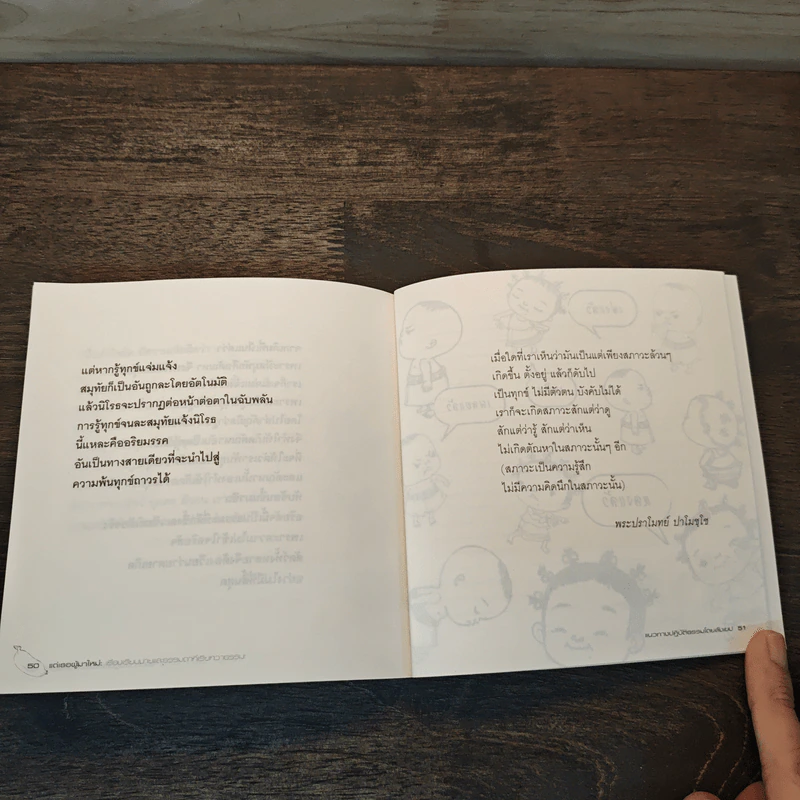 แต่หากรู้ทุกข์แจ่มแจ้ง
สมุทัยก็เป็นอันถูกละโดยอัตโนมัติ
แล้วนิโรธจะปรากฏต่อหน้าต่อตาในฉับพลัน
การรู้ทุกข์จนละสมุทัยแจ้งนิโรธ
นี้แหละคืออริยมรรค
อันเป็นทางสายเดียวที่จะนำไปสู่
ความพ้นทุกข์ถาวรได้
50 แด่เธอผู้มาใหม่: เรื่องเรียบง่ายและธรรมดาที่เรียกว่าธรรมะ
เมื่อใดที่เราเห็นว่ามันเป็นแต่เพียงสภาวะล้วนๆ
เกิดขึ้น ตั้งอยู่ แล้วก็ดับไป
เป็นทุกข์ ไม่มีตัวตน บังคับไม่ได้
เราก็จะเกิดสภาวะสักแต่ว่าดู
สักแต่ว่ารู้ สักแต่ว่าเห็น
ไม่เกิดตัณหาในสภาวะนั้นๆ อีก
(สภาวะเป็นความรู้สึก
ไม่มีความคิดนึกในสภาวะนั้น)
พระปราโมทย์ ปาโมชฺโช
แนวทางปฏิบัติธรรมโดยสังเขป 51